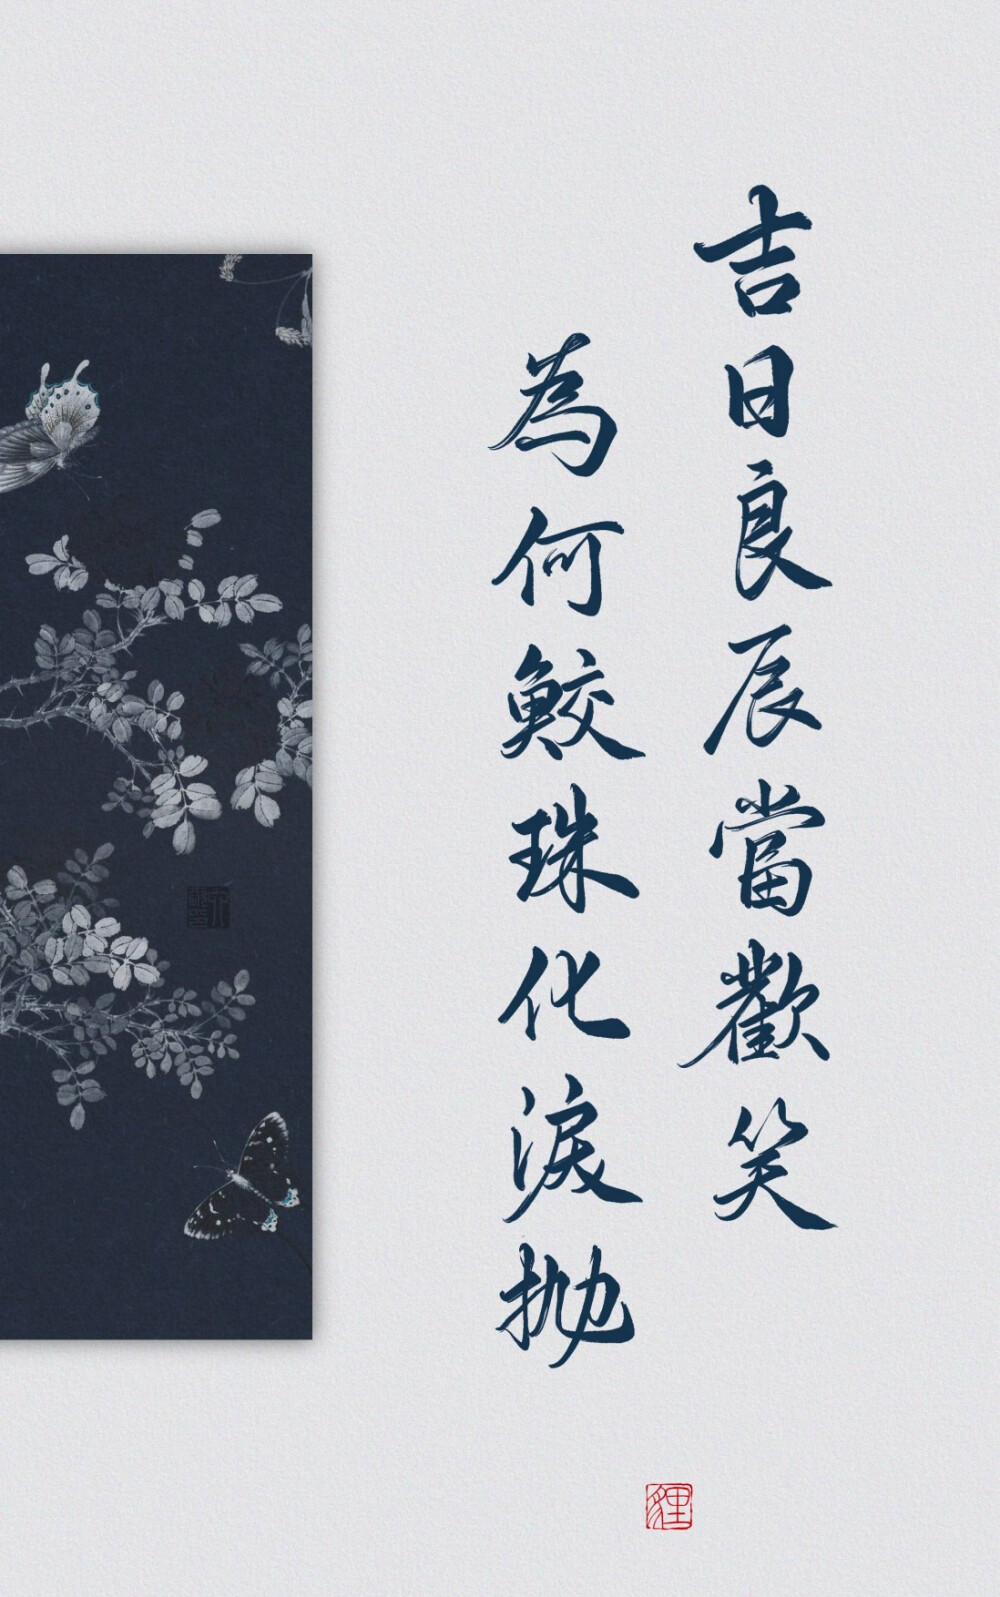 吉日良辰當歡笑
為何鮫珠化淚拋
貍